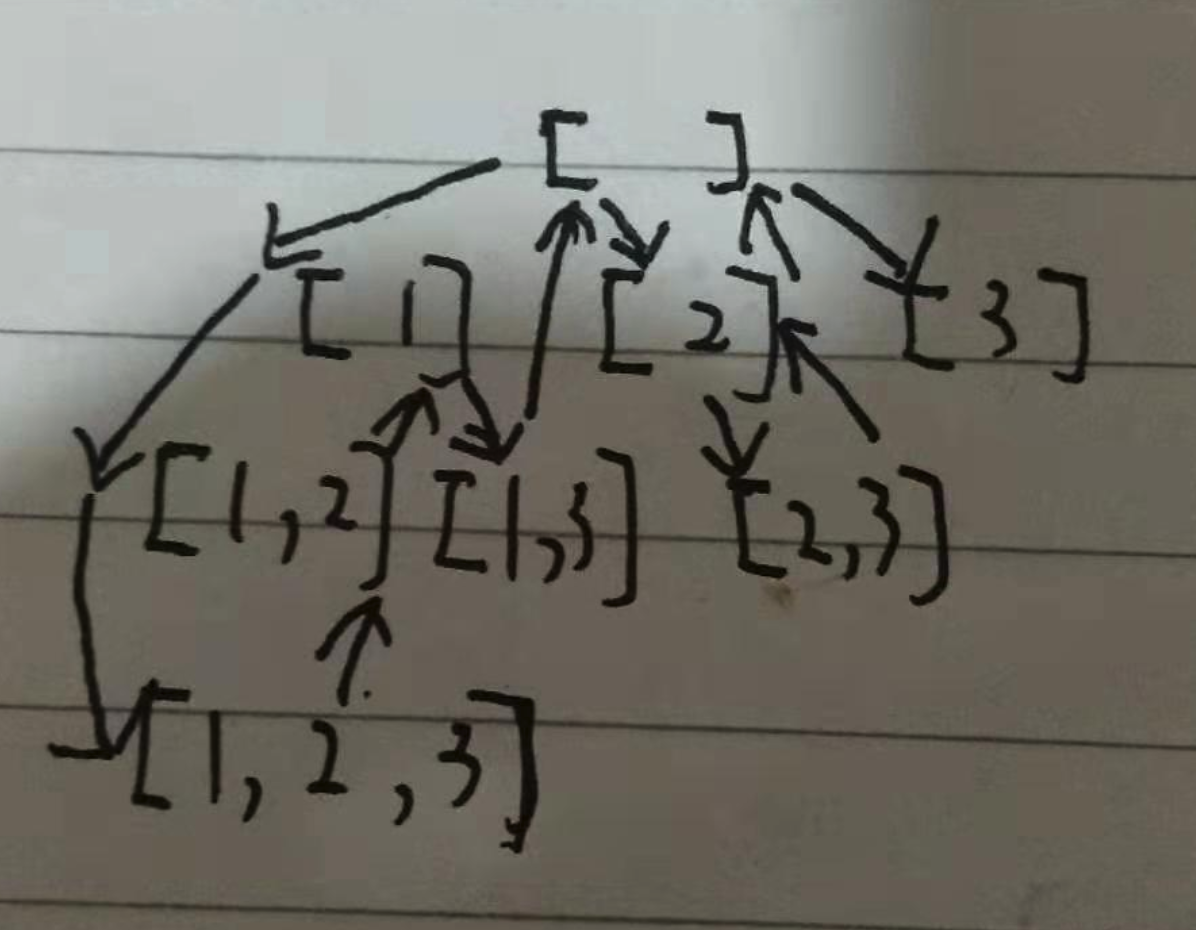 [ ]
[ 1 ] [ 2 ] [ 3 ]
[1,2] [1,3] [2,3]
[1, 2, 3]